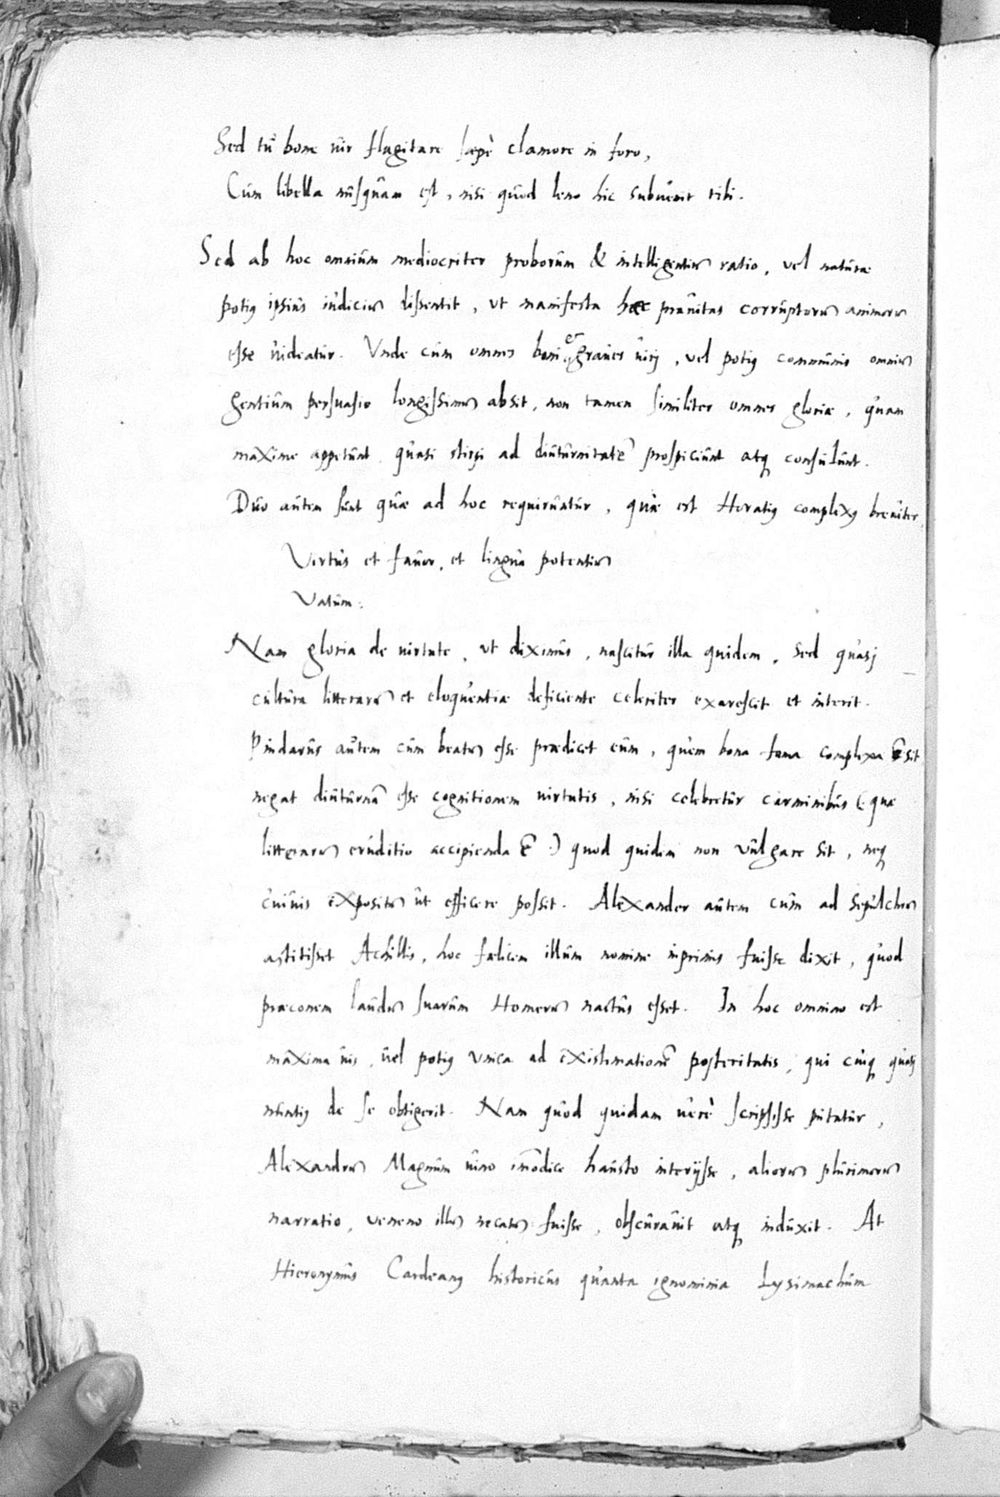 Sed tu bone uir flagitare sæpè clamore in foro,
Cùm libella nusquam est, nisi quòd leno hic subuenit tibi.
Sed ab hoc omnium mediocriter proborum & intelligentiũ ratio, vel naturæ
potiꝰ ipsius iudiciũ dissentit, vt manifesta hæc prauitas corruptorũ animorũ
esse uideatur. Vnde cùm omnes boni et graues uiri, vel potiꝰ communis omniũ
gentium persuasio longissimè absit, non tamen similiter omnes gloriæ, quam
maxime appetunt quasi stirpi ad diuturnitatẽ prospiciunt atq consulunt.
Duo autem sunt quæ ad hoc requiruntur, quæ est Horatiꝰ complexꝰ breuiter
Virtus et fauor, et lingua potentiũ
Vatum:
Nam gloria de uirtute, vt diximus, nascitur illa quidem, sed quasj
cultura litterarũ et eloquentiæ deficiente celeriter exarescit et interit.
Pindarus autem cùm beatũ esse prædicet eum, quem bona fama complexa sit
negat diuturnã esse cognitionem uirtutis, nisi celebretur carminibus (quæ
litterarũ eruditio accipienda ẽ:) quod quidem non vulgare sit, neq
cuiuis expositũ ut efficere possit. Alexander autem cùm ad sepulchrũ
astitisset Achillis, hoc fælicem illum nomine inprimis fuisse dixit, quod
præconem laudũ suarum Homerũ nactus esset. In hoc omnino est
maxima uis, uel potiꝰ vnica ad existimationẽ posteritatis, qui cuiq quasj
nũntiꝰ de se obtigerit. Nam quòd quidam uerè scripsisse putatur,
Alexandrũ Magnum uino imõdice hausto interijsse, aliorũ plurimorũ
narratio, veneno illũ necatũ fuisse, obscurauit atq induxit. At
Hieronymus Cardeanꝰ historicus quanta ignominia Lysimachum